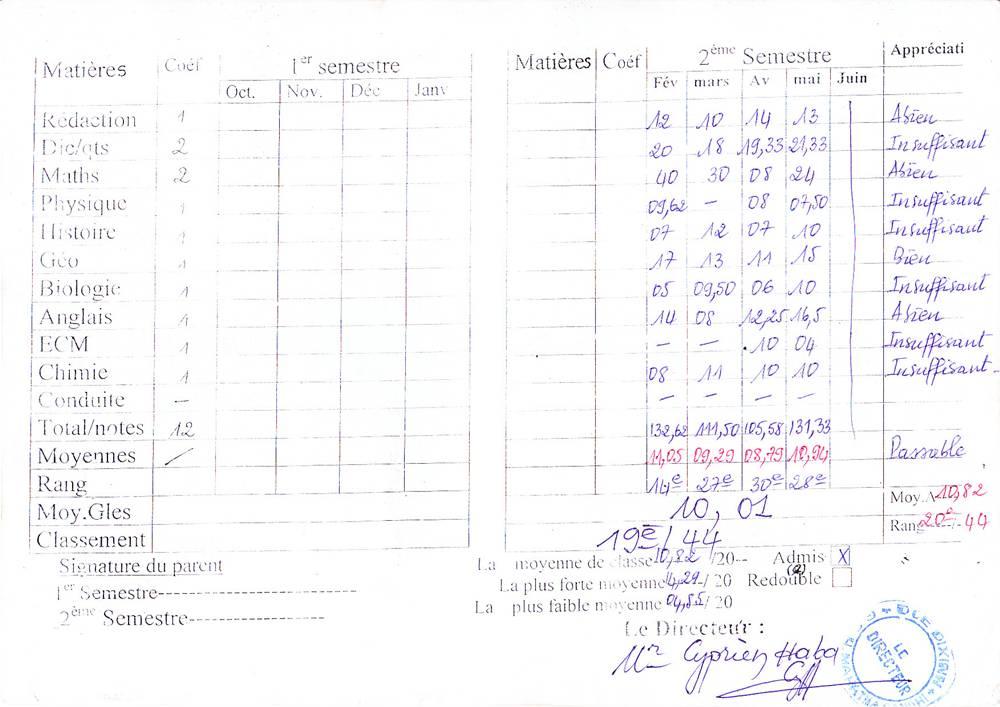 Matières Coéf 1er semestre Matières Coéf 2ème Semestre Appréciati
Oct. Nov. Déc Janv Fév mars Av mai Juin
Rédaction 1 12 10 14 13 Abien
Dic/qts 2 20 18 19,33 21,33 Insuffisant
Maths 2 40 30 08 24 Abien
Physique 1 09,62 – 08 07,50 Insuffisant
Histoire 1 07 12 07 10 Insuffisant
Géo 1 17 13 11 15 Bien
Biologie 1 05 09,50 06 10 Insuffisant
Anglais 1 14 08 12,25 16,5 Abien
ECM 1 – – 10 04 Insuffisant
Chimie 1 08 11 10 10 Insuffisant
Conduite – – – – –
Total/notes 12 132,62 111,50 105,58 131,33
Moyennes / 11,05 09,29 08,79 10,94 Passable
Rang 14e 27e 30e 28e
Moy.Gles 10,01 Moy.A 10,82
Classement 19e/44 Rang 20e-/-44
Signature du parent
1er Semestre--------------------
2ème Semestre-----------------
La moyenne de classe 10,82 /20-- Admis X
La plus forte moyenne 14,29-/ 20 Redouble
La plus faible moyenne 04,85/ 20
Le Directeur :
Mr Cyprien Haba
LE
DIRECTEUR